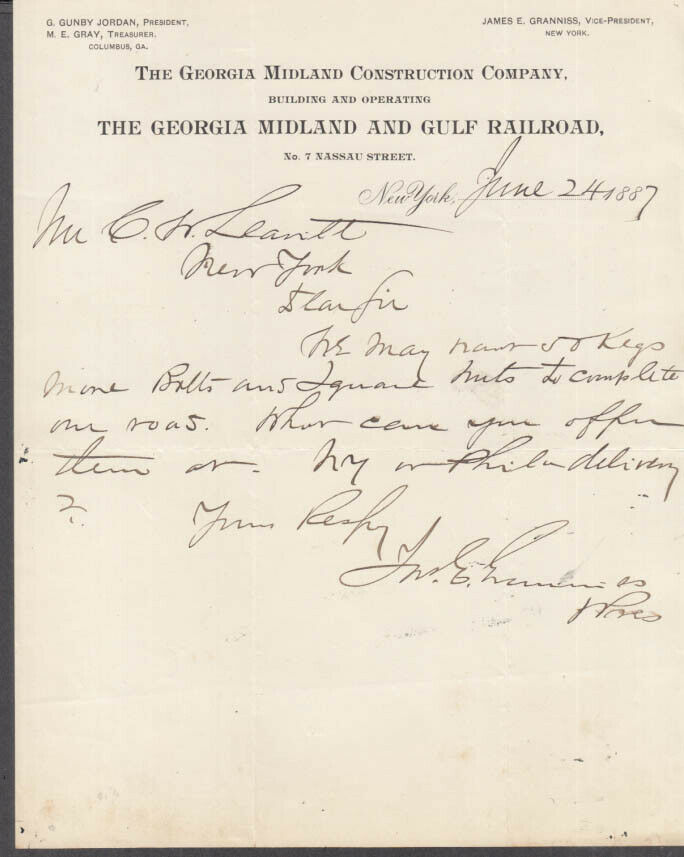 G. GUNBY JORDAN, PRESIDENT,
M. E. GRAY, TREASURER.
COLUMBUS, GA.
JAMES E. GRANNISS, VICE-PRESIDENT,
NEW YORK.
THE GEORGIA MIDLAND CONSTRUCTION COMPANY,
BUILDING AND OPERATING
THE GEORGIA MIDLAND AND GULF RAILROAD,
No. 7 NASSAU STREET.
New York, June 24 1887
Mr C. W. Leavitt
New York
Dear Sir
We may want 50 Kegs
more Bolts and Square Nuts to complete
our road. What can you offer
them at. NY or Phila delivery
?
Yours Respy
Jas. E. Granniss
VPres